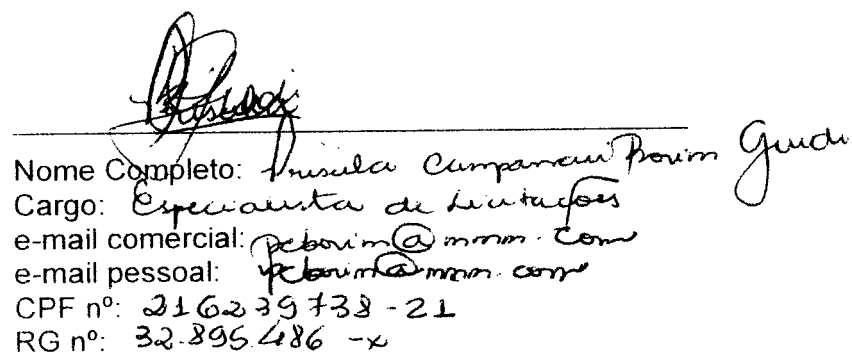 Nome Completo: Priscila Campanari Borim Guidi
Cargo: Especialista de Licitações
e-mail comercial: pcborim@mmm.com
e-mail pessoal: pcborim@mmm.com
CPF nº: 216239738-21
RG nº: 32.895.486-x